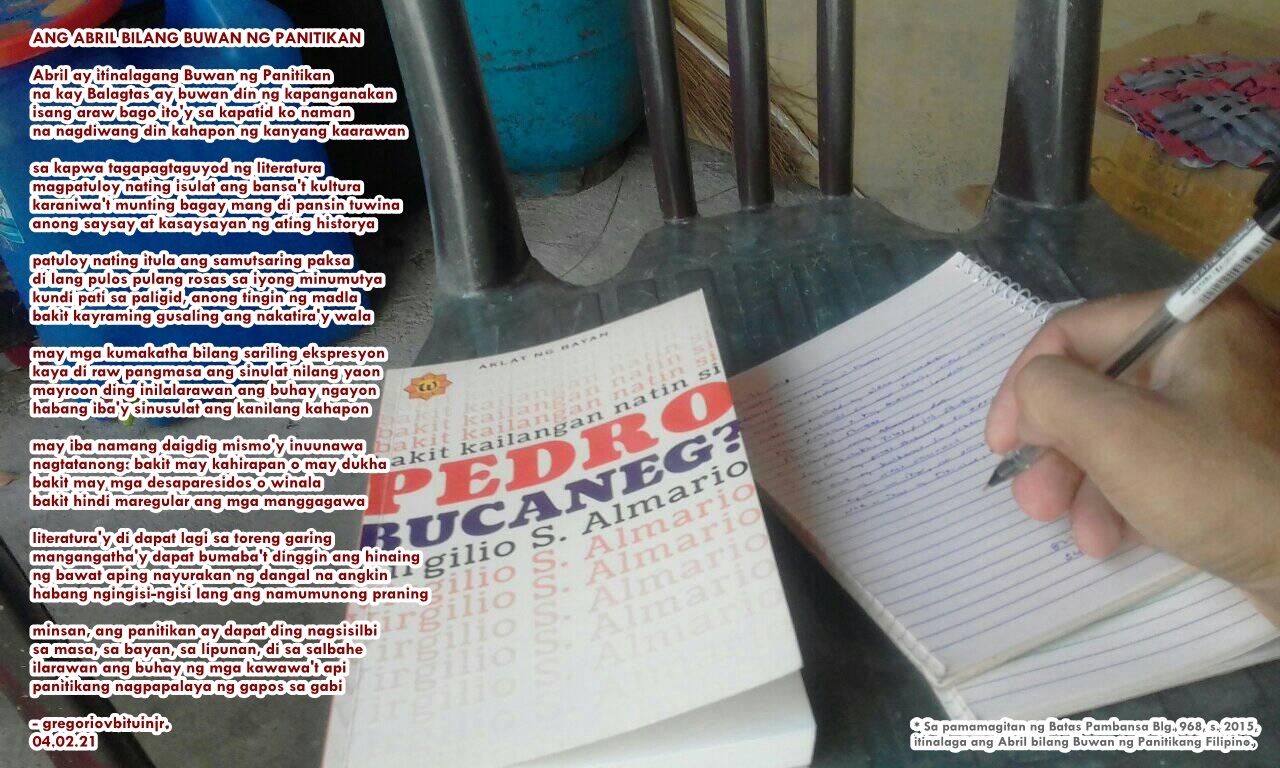 ANG ABRIL BILANG BUWAN NG PANITIKAN
Abril ay itinalagang Buwan ng Panitikan
na kay Balagtas ay buwan din ng kapanganakan
isang araw bago ito'y sa kapatid ko naman
na nagdiwang din kahapon ng kanyang kaarawan
sa kapwa tagapagtaguyod ng literatura
magpatuloy nating isulat ang bansa't kultura
karaniwa't munting bagay mang di pansin tuwina
anong saysay at kasaysayan ng ating historya
patuloy nating itula ang samutsaring paksa
di lang pulos pulang rosas sa iyong minumutya
kundi pati sa paligid, anong tingin ng madla
bakit kayraming gusaling ang nakatira'y wala
may mga kumakatha bilang sariling ekspresyon
kaya di raw pangmasa ang sinulat nilang yaon
mayroon ding inilalarawan ang buhay ngayon
habang iba'y sinusulat ang kanilang kahapon
may iba namang daigdig mismo'y inuunawa
nagtatanong: bakit may kahirapan o may dukha
bakit may mga desaparesidos o winala
bakit hindi maregular ang mga manggagawa
literatura'y di dapat lagi sa toreng garing
mangangatha'y dapat bumaba't dinggin ang hinaing
ng bawat aping nayurakan ng dangal na angkin
habang ngingisi-ngisi lang ang namumunong praning
minsan, ang panitikan ay dapat ding nagsisilbi
sa masa, sa bayan, sa lipunan, di sa salbahe
ilarawan ang buhay ng mga kawawa't api
panitikang nagpapalaya ng gapos sa gabi
- gregoriovbituinjr.
04.02.21
AKLAT NG BAYAN
bakit kailangan natin si
bakit kailangan natin si
bakit kailangan natin si
PEDRO
BUCANEG?
Virgilio S. Almario
Virgilio S. Almario
Virgilio S. Almario
Virgilio S. Almario
Virgilio S. Almario
* Sa pamamagitan ng Batas Pambansa Blg. 968, s. 2015,
itinalaga ang Abril bilang Buwan ng Panitikang Filipino.